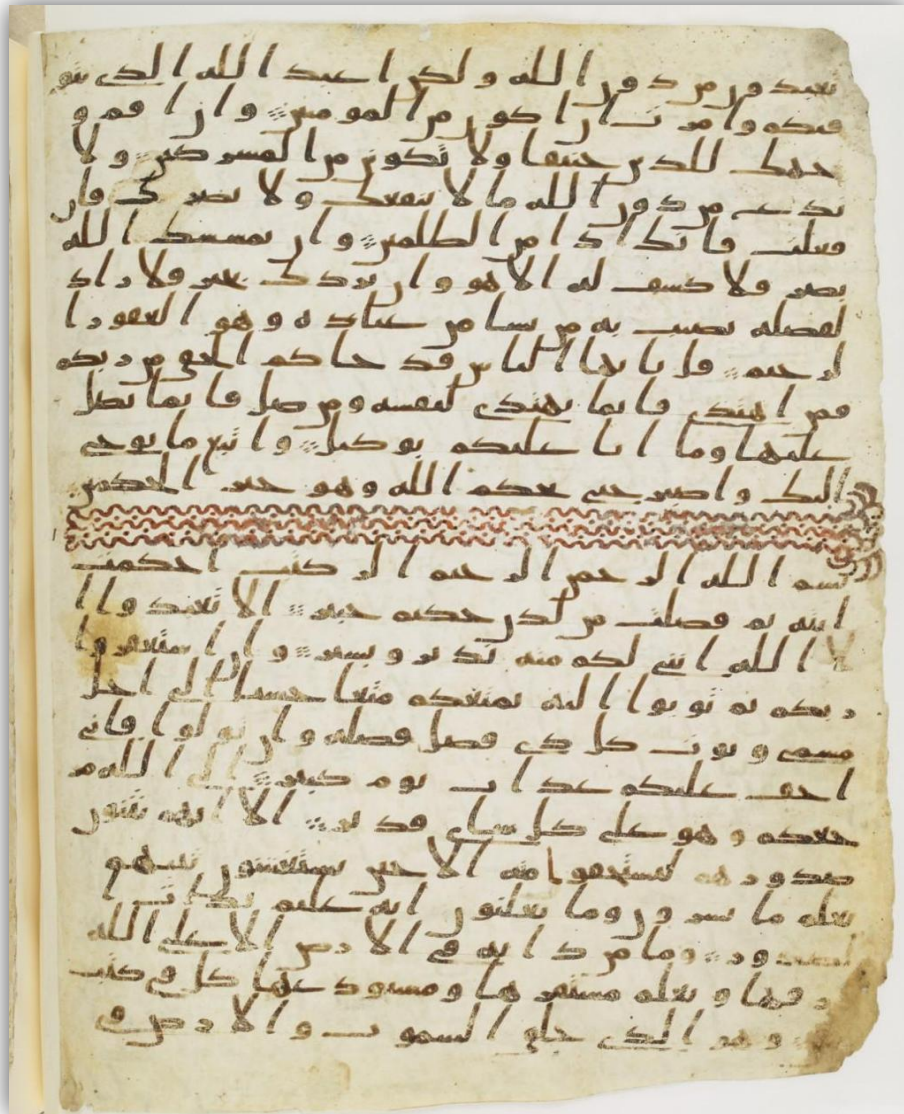 تعبدون من دون الله ولكن اعبد الله الذى يتو
فيكم وامرت ان اكون من المومنين وان اقم و
جهك للدين حنيفا ولا تكونن من المشركين ولا
تدع من دون الله ما لا ينفعك ولا يضرك فان
فعلت فانك اذا من الظلمين وان يمسسك الله
بضر فلا كشف له الا هو وان يردك بخير فلا راد
لفضله يصيب به من يشا من عباده وهو الغفور ا
لرحيم قل يايها الناس قد جاكم الحق من ربكم
فمن اهتدى فانما يهتدى لنفسه ومن ضل فانما يضل
عليها وما انا عليكم بوكيل واتبع ما يوحى
اليك واصبر حتى يحكم الله وهو خير الحكمين
بسم الله الرحمن الرحيم الر كتب احكمت
ايته ثم فصلت من لدن حكيم خبير الا تعبدوا ا
لا الله اننى لكم منه نذير وبشير وان استغفروا
ربكم ثم توبوا اليه يمتعكم متعا حسنا الى اجل
مسمى ويوت كل ذى فضل فضله وان تولوا فانى
اخف عليكم عذاب يوم كبير الى الله مر
جعكم وهو على كل شاى قدير الا انهم يثنون
صدورهم ليستخفوا منه الا حين يستغشون ثيبهم
يعلم ما يسرون وما يعلنون انه عليم بذات ا
لصدور وما من دابة فى الارض الا على الله
رزقها ويعلم مستقرها ومستودعها كل فى كتب
وهو الذى خلق السموت والارض فى